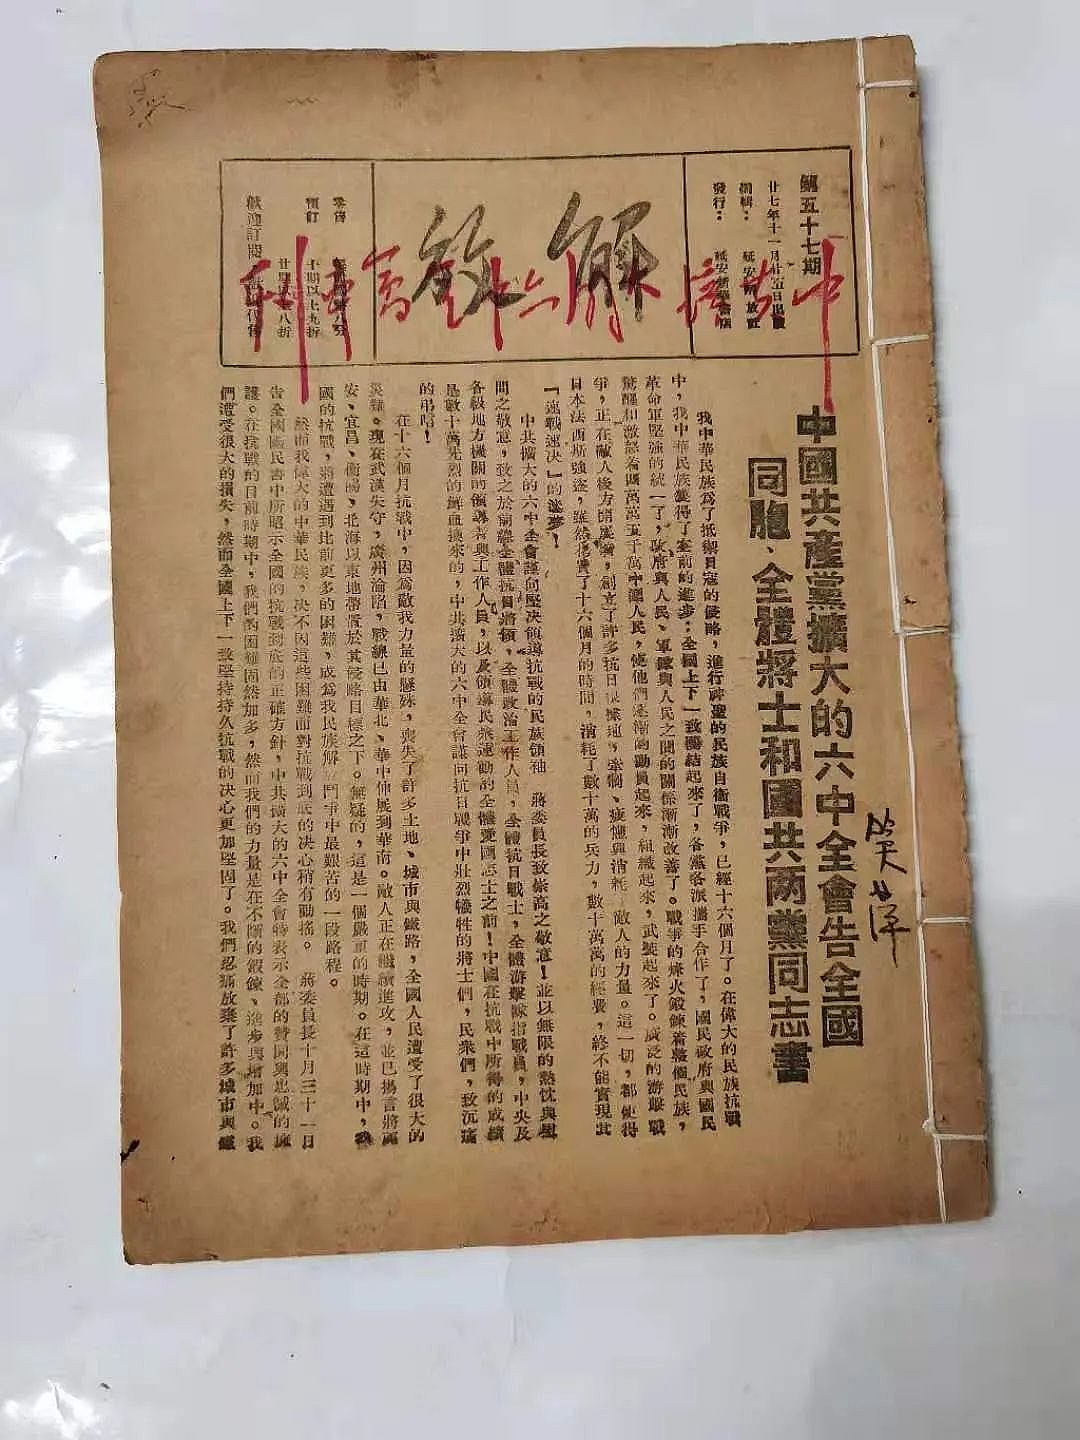 第五十七期
廿七年十一月廿五日出版
編輯：延安解放社
發行：延安新華書店
解放
中共擴大的六中全會專刊
零售
預訂
十期以上九折
廿期以上八折
歡迎訂閱
中國共產黨擴大的六中全會告全國
同胞、全體將士和國共两黨同志書
我中華民族為了抵禦日寇的侵略，進行神聖的民族自衛戰爭，已經十六個月了。在偉大的民族抗戰
中，我中華民族變得了空前的進步：全國上下一致團結起來了，各黨各派攜手合作了，國民政府與國民
革命軍堅強的統一了，政府與人民、軍隊與人民之間的關係漸漸改善了。戰爭的烽火鍛鍊着整個民族，
驚醒和激怒着四萬萬五千萬中國人民，使他們逐漸的動員起來，組織起來，武裝起來了。廣泛的游擊戰
爭，正在敵人後方開展着，創立了許多抗日根據地，牽制、疲憊與消耗敵人的力量。這一切，都使得
日本法西斯強盜，雖然花費了十六個月的時間，消耗了數十萬的兵力，數十萬萬的經費，終不能實現其
「速戰速决」的迷夢！
中共擴大的六中全會謹向堅决領導抗戰的民族領袖 蔣委員長致崇高之敬意！並以無限的熱忱與
間之敬意，致之於前線全體抗日將領，全體政治工作人員，全體抗日戰士，全體游擊隊指戰員，中央及
各級地方機關的領導者與工作人員，以及領導民衆運動的全體愛國志士之前！中國在抗戰中所得的成績
是數十萬先烈的鮮血換來的，中共擴大的六中全會謹向抗日戰爭中壯烈犧牲的將士們，民衆們，致沉痛
的弔唁！
在十六個月抗戰中，因為敵我力量的懸殊，喪失了許多土地、城市與鐵路，全國人民遭受了很大的
災難。現在武漢失守，廣州淪陷，戰線已由華北、華中伸展到華南。敵人正在繼續進攻，並已揚言將
安、宜昌、衡陽，北海以東地帶置於其侵略目標之下。無疑的，這是一個嚴重的時期。在這時期中，我
國的抗戰，將遭遇到比前更多的困難，成為我民族解放鬥爭中最艱苦的一段路程。
然而我偉大的中華民族，决不因這些困難而對抗戰到底的决心稍有動搖。 蔣委員長十月三十一日
告全國國民書中所昭示全國的抗戰到底的正確方針，中共擴大的六中全會特表示全部的贊同與忠誠的擁
護。在抗戰的目前時期中，我們的困難固然加多，然而我們的力量是在不斷的鍛鍊、進步與增加中。我
們遭受很大的損失，然而全國上下一致堅持持久抗戰的决心更加堅固了。我們忍痛放棄了許多城市與鐵